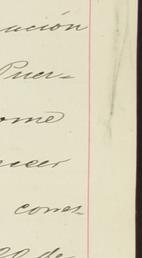 ación
Puer-
ome
ecer
corres-
de